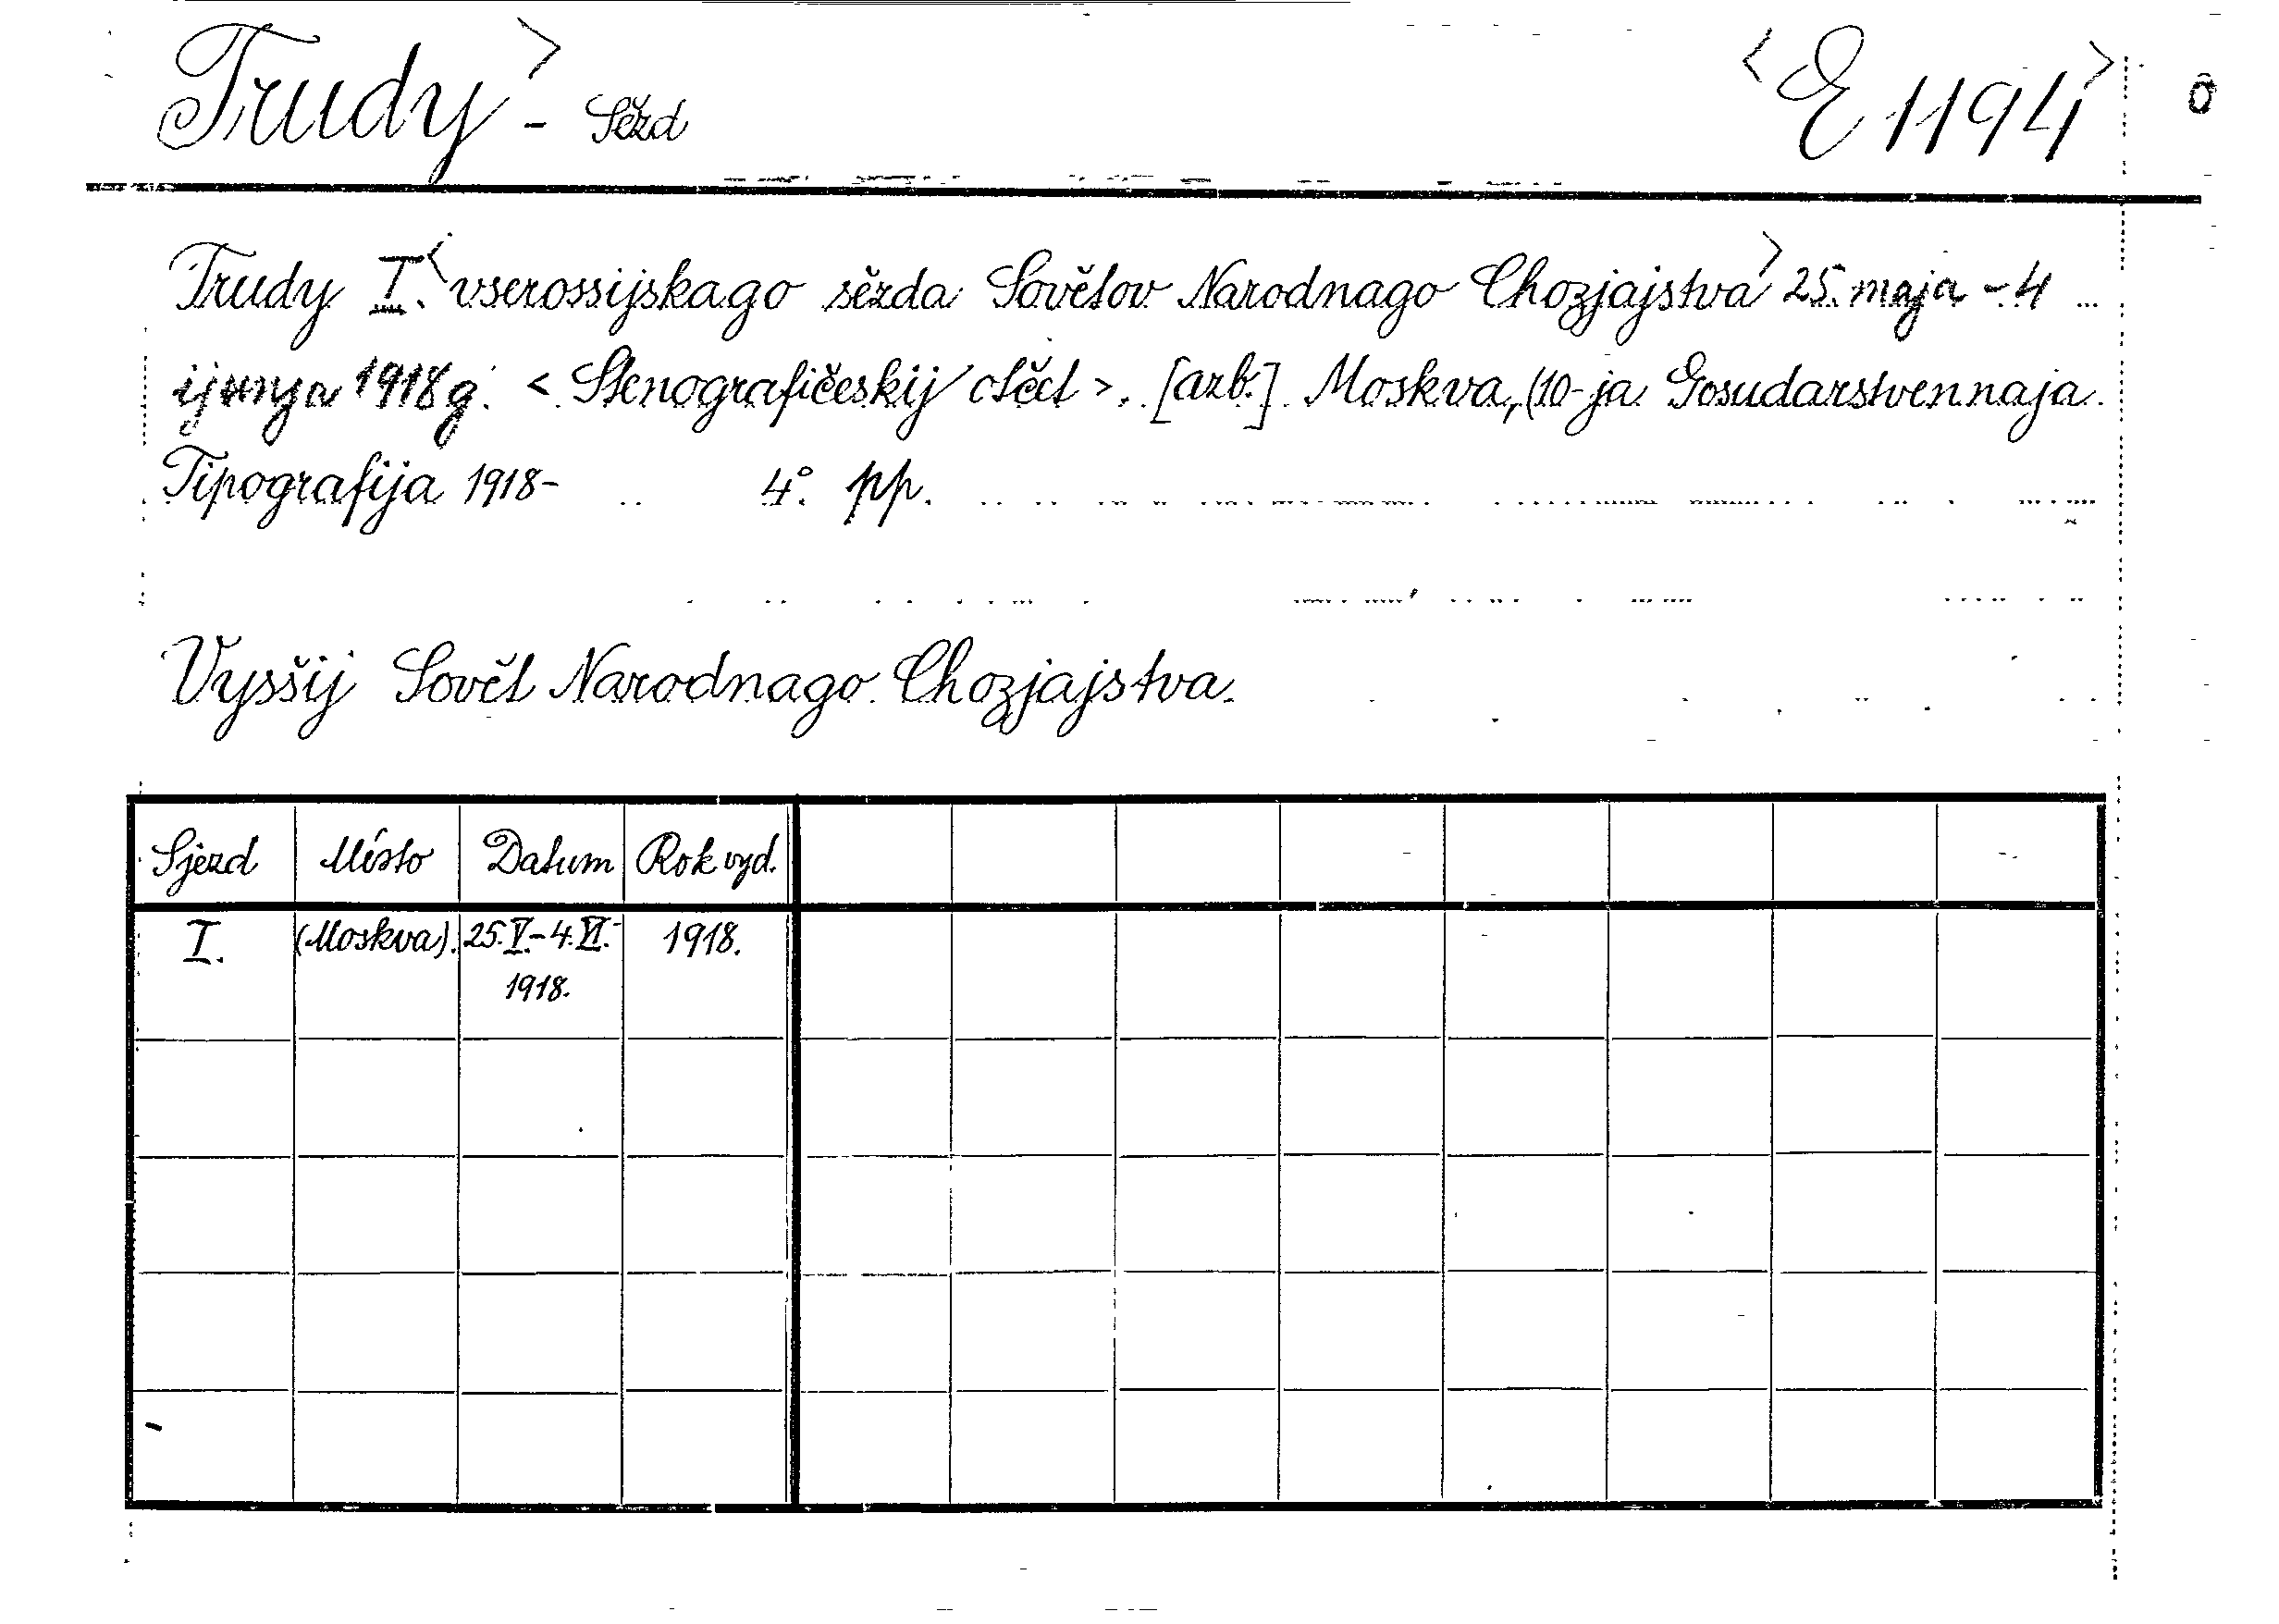 Trudy> - Sězd <E 1194>
Trudy I. <vserossijskago sězda Sovětov Narodnago Chozjajstva> 25. maja - 4
ijunja 1918 g. < Stenografičeskij otčet >. [azb.] Moskva, (10-ja Gosudarstvennaja
Tipografija 1918- 4° pp.
Vysšij Sovět Narodnago Chozjajstva.
Sjezd Místo Datum Rok vyd.
I. (Moskva). 25.V.-4.VI. 1918.
1918.